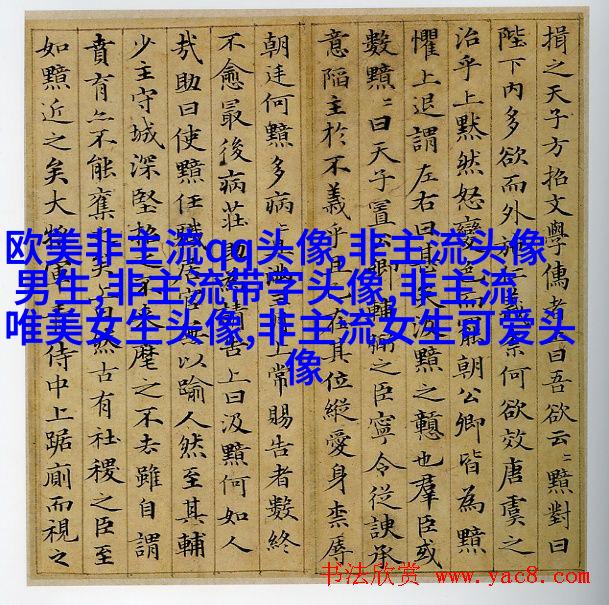 揖之天子方招文學儒者上曰吾欲云〻黯對曰
陛下內多欲而外施仁義柰何欲效唐虞之
治乎上默然怒變色而罷朝公卿皆為黯
懼上退謂左右曰甚矣汲黯之戇也羣臣或
數黯〻曰天子置公卿輔弼之臣寧令從諛承
意陷主於不義乎且已在其位縱愛身柰辱
朝廷何黯多病〻且滿三月上常賜告者數終
不愈最後病莊助為請告上曰汲黯何如人
㢤助曰使黯任職居官毋以踰人然至其輔
少主守城深堅招之不來麾之不去雖自謂
賁育亦不能奪之矣上曰然古有社稷之臣至
如黯近之矣大將軍青侍中上踞廁而視之
欧美非主流qq头像,非主流头像
男生,非主流带字头像,非主流
唯美女生头像,非主流女生可爱头
像
书法欣赏 www.yac8.com